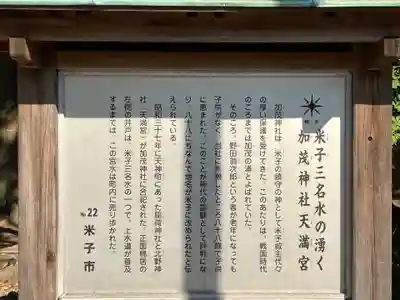 米子三名水の湧く
加茂神社天満宮
加茂神社は、米子の鎮守の神として米子城主代々
の厚い保護を受けてきた。このあたりは、戦国時代
のころまでは加茂の浦とよばれていた。
そのころ、野田翁次郎という者が老年になっても
子供がなく、当社に祈願したところ八十八歳で子供
に恵まれた。このことが稀代の霊験として評判にな
り、八十八にちなんで地名が米子に改められたと伝
えられている。
昭和三十七年に天神町にあった稲荷神社と北野神
社(天満宮)が加茂神社に合祀された。正面鳥居の
左側の井戸は、米子三名水の一つで、上水道が普及
するまでは、この宮水は町内に売り歩かれた。
No.22
米子市